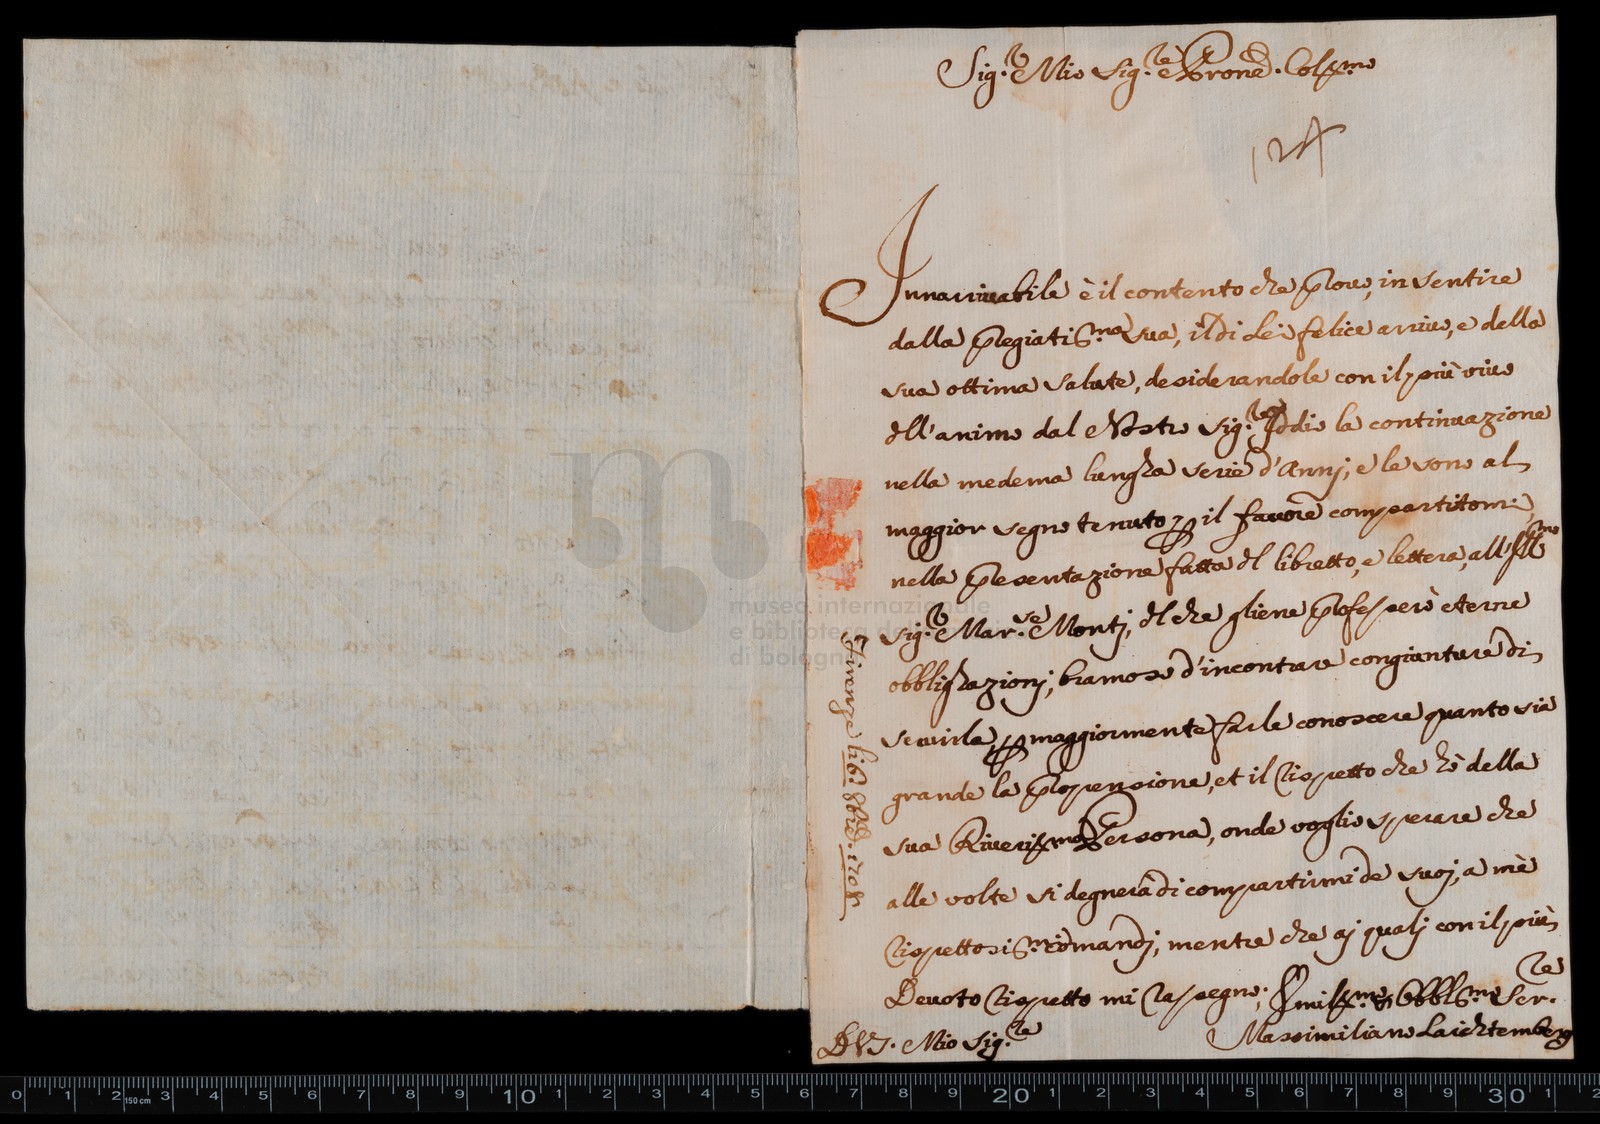 Sig.re Mio Sig.re e Prone. Colmo
124
Innarivabile è il contento che provo, in sentire
dalla pregiatis.ma sua, il di Lei felice arrivo, e della
sua ottima salute, desiderandole con il più vivo
dell'animo dal Nostro Sig.re Iddio la continuazione
nella medema lungha serie d'Annj, e le sono al
maggior segno tenuto p il favore compartitomi,
nella presentazione fatta del libretto, e lettera, all'Ill.mo
Sig.re Mar.se Montj, del che gliene professerò eterne
obblighazionj, bramoso d'incontrare congiunture di
servirla, p maggiormente farle conoscere quanto sia
grande la propensione, et il rispetto che hò della
sua Riveritma Persona, onde voglio sperare che
alle volte si degnerà di compartirmi de suoj, a mè
rispettosis.mi comandj, mentre che aj qualj con il più
Devoto rispetto mi rassegno;
D V S. Mio Sig.re
Umil.mo et Obbl.mo Ser.re
Massimiliano Laichtemberg
Firenze li 6. 8bre. 1708
museo internazionale
e biblioteca della musica
di bologna
0 1 2 3 4 5 6 7 8 9 10 1 2 3 4 5 6 7 8 9 20 1 2 3 4 5 6 7 8 9 30 1 2
150 cm